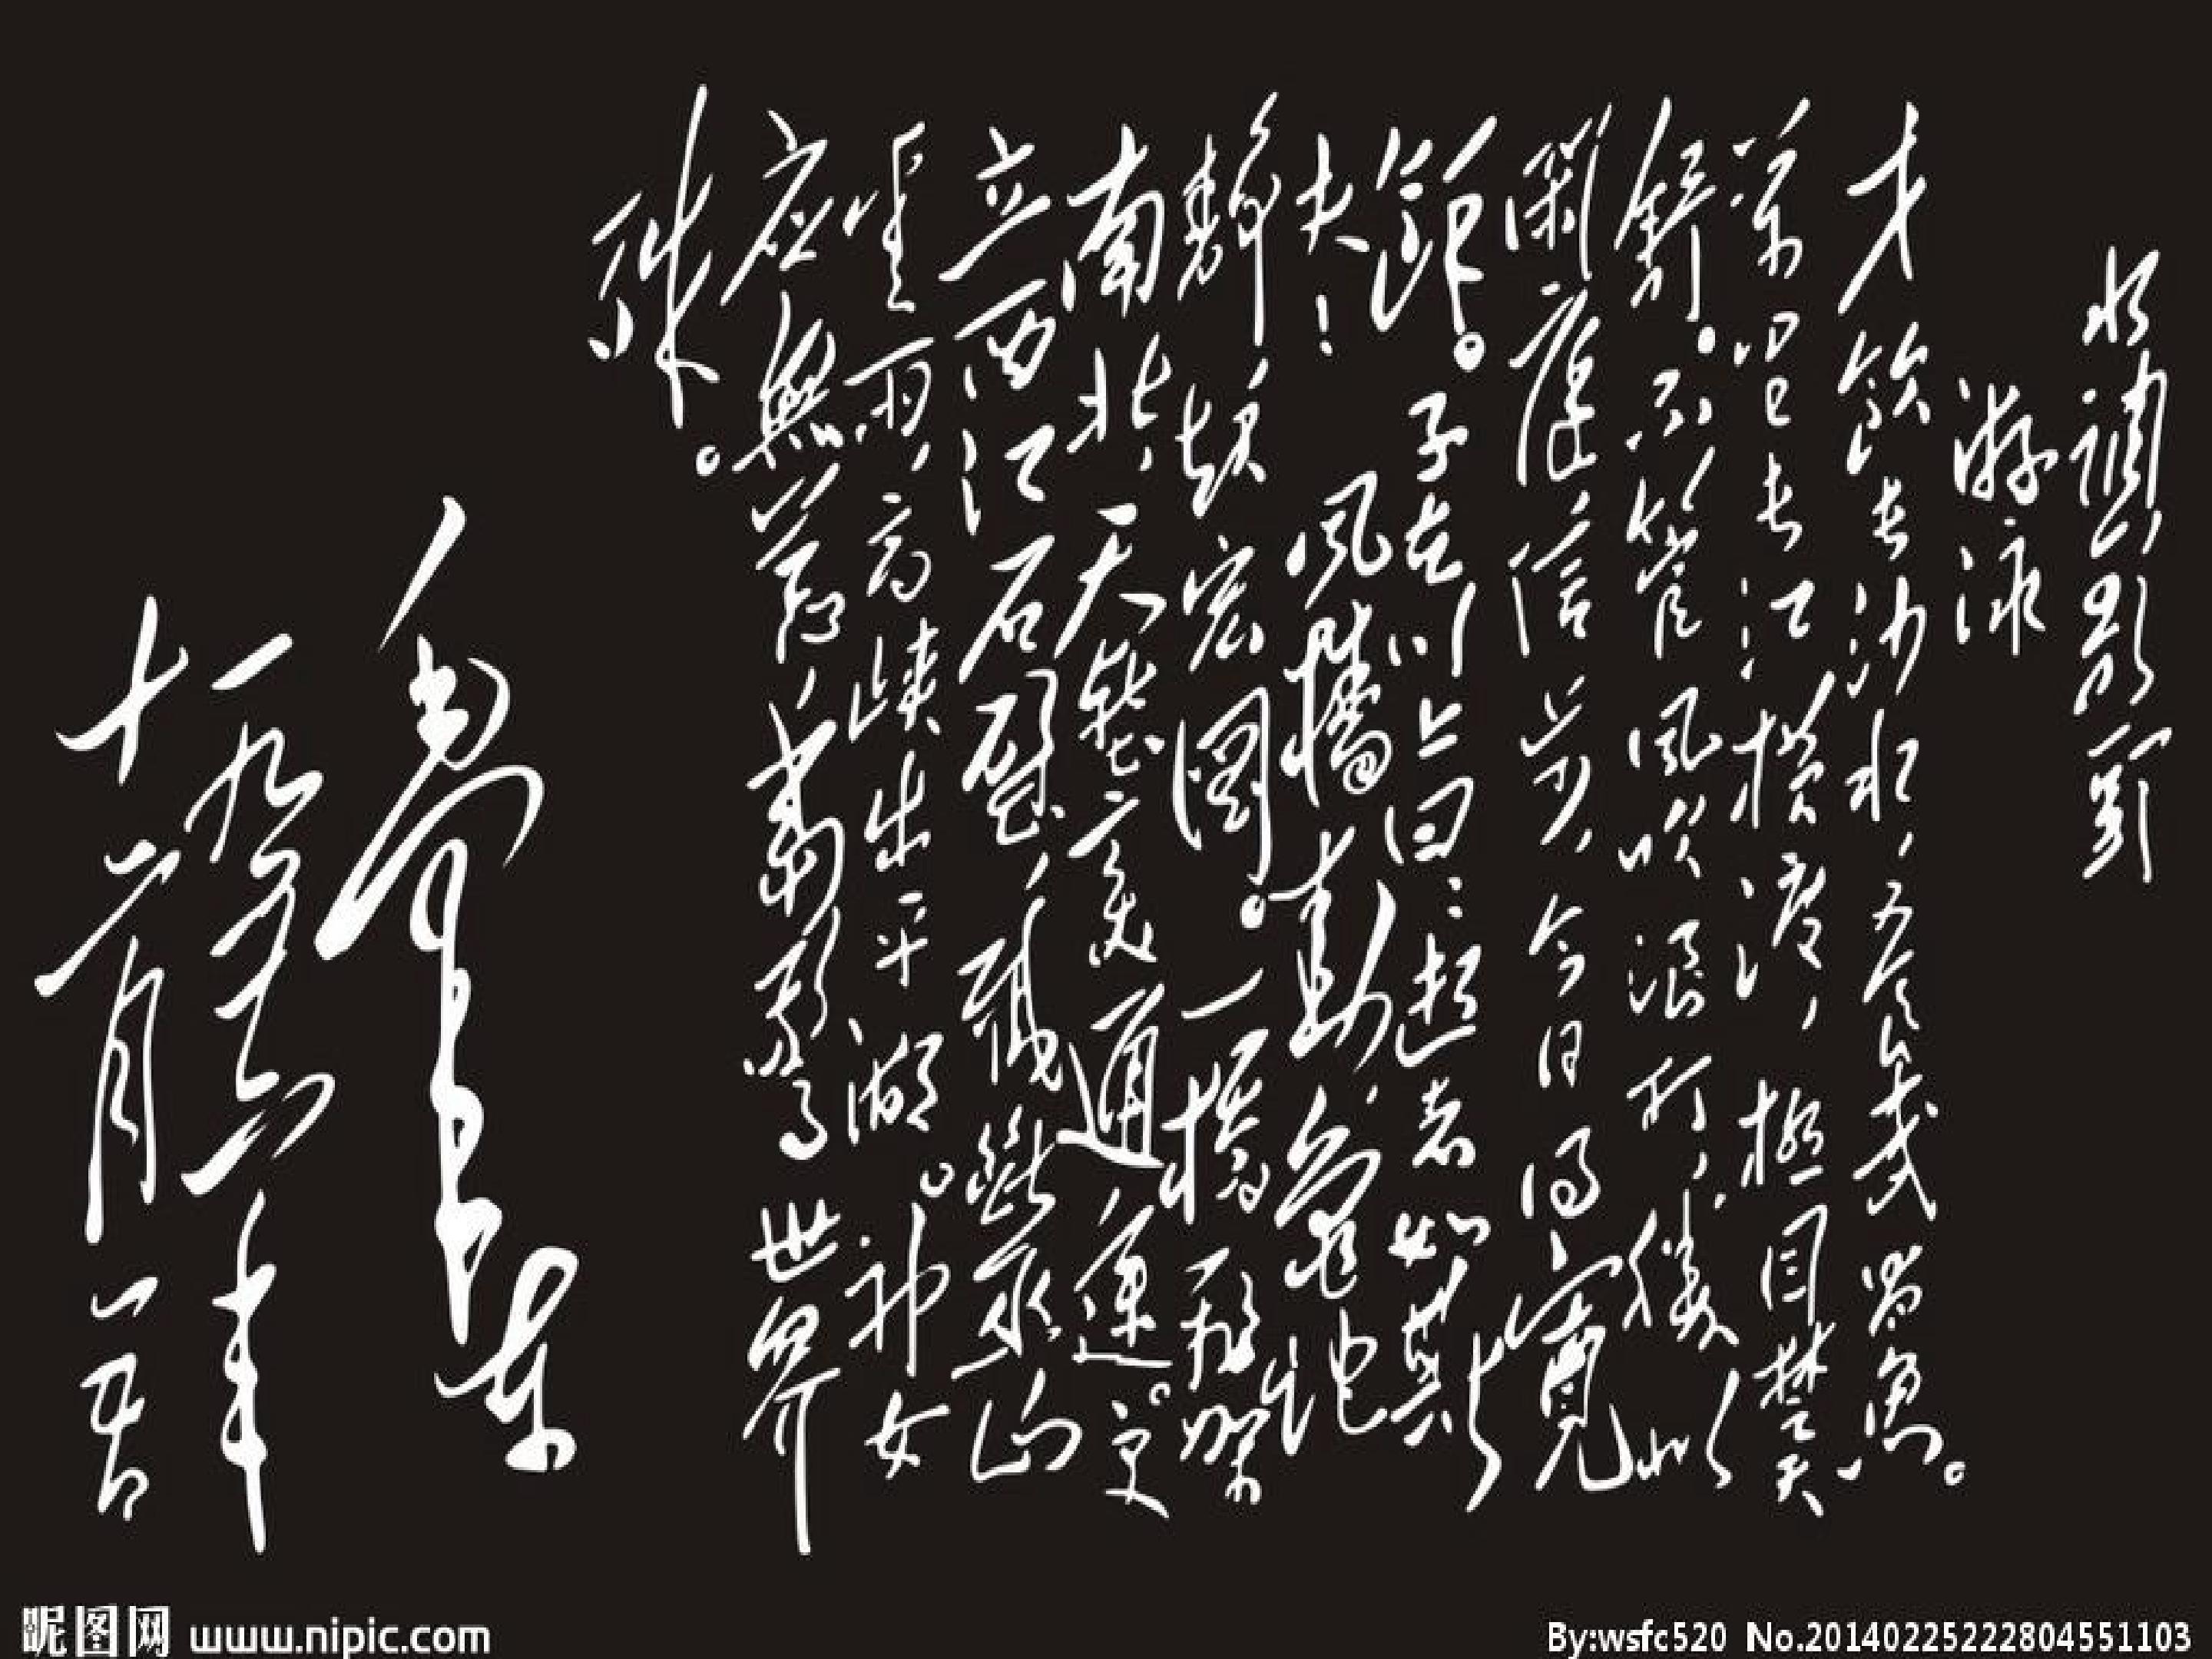 水调歌头
游泳
才饮长沙水，又食武昌鱼。
万里长江横渡，极目楚天
舒。不管风吹浪打，胜似
闲庭信步，今日得宽
馀。子在川上曰：逝者如斯
夫！风樯动，龟蛇
静，起宏图。一桥飞架
南北，天堑变通途。更
立西江石壁，截断巫山
云雨，高峡出平湖。神女
应無恙，当惊世界
殊。
毛泽东
一九五六年
十二月五日
昵图网 www.nipic.com
By:wsfc520 No.20140225222804551103